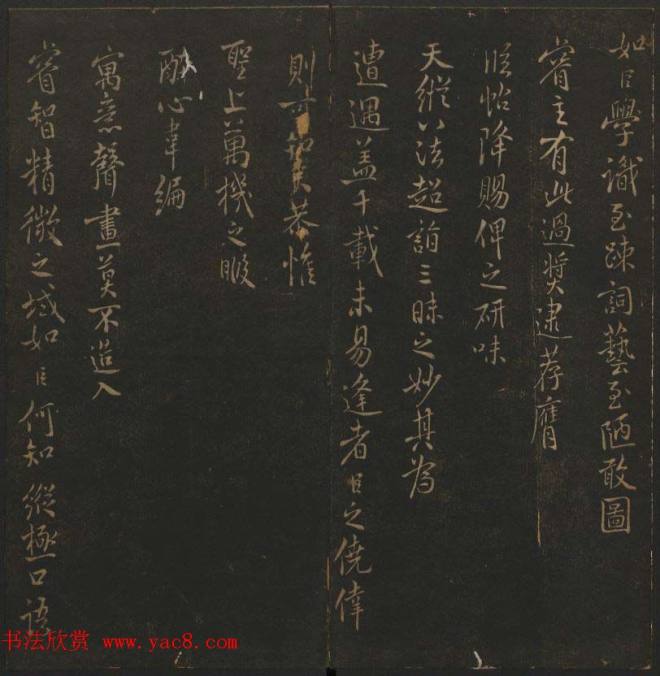 如臣學識至踈詞藝至陋敢圖
睿主有此過奬逮荐膺
貺怡降賜俾之研味
天縱八法超詣三昧之妙其為
遭遇盖千載未易逢者臣之僥倖
則可知矣恭惟
聖上萬機之暇
酣心韋編
寓意聲畫莫不造入
睿智精微之域如臣何知縱極口語
书法欣赏 www.yac8.com